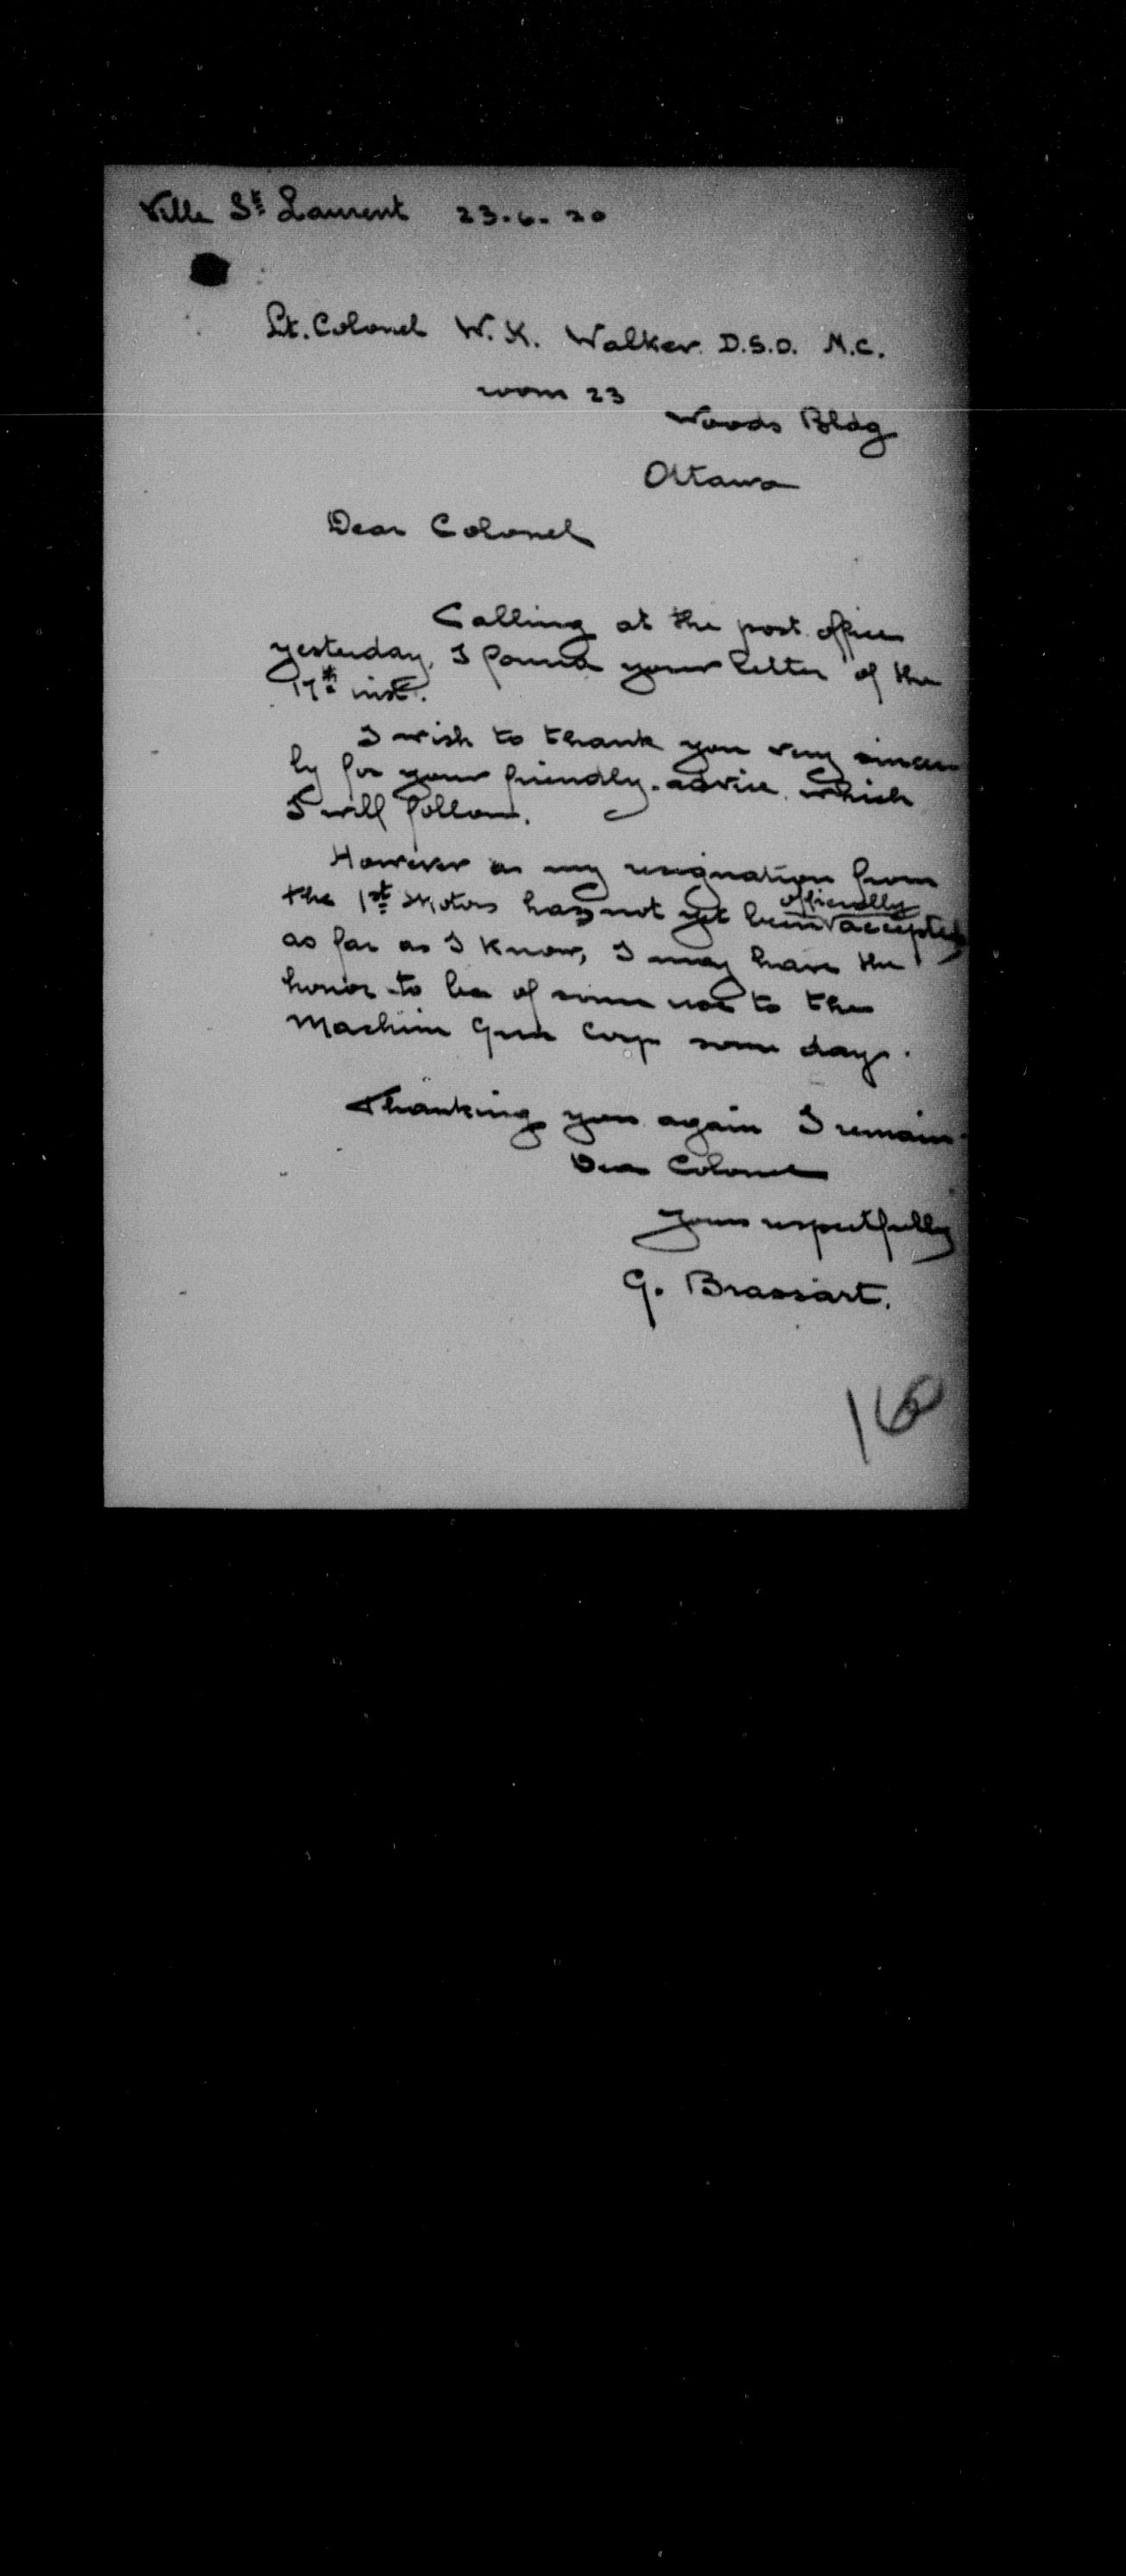 Ville St Laurent 23.6.20
Lt. Colonel W. K. Walker. D.S.O. M.C.
room 23
Woods Bldg
Ottawa
Dear Colonel
Calling at the post office
yesterday, I found your letter of the
17th inst.
I wish to thank you very sincere
ly for your friendly advice which
I will follow.
However as my resignation from
officially
the 1st Motors has not yet been accepted
as far as I know, I may have the
honor to be of some use to the
Machine Gun Corp some day.
Thanking you again I remain
Dear Colonel
yours respectfully
G. Brassart.